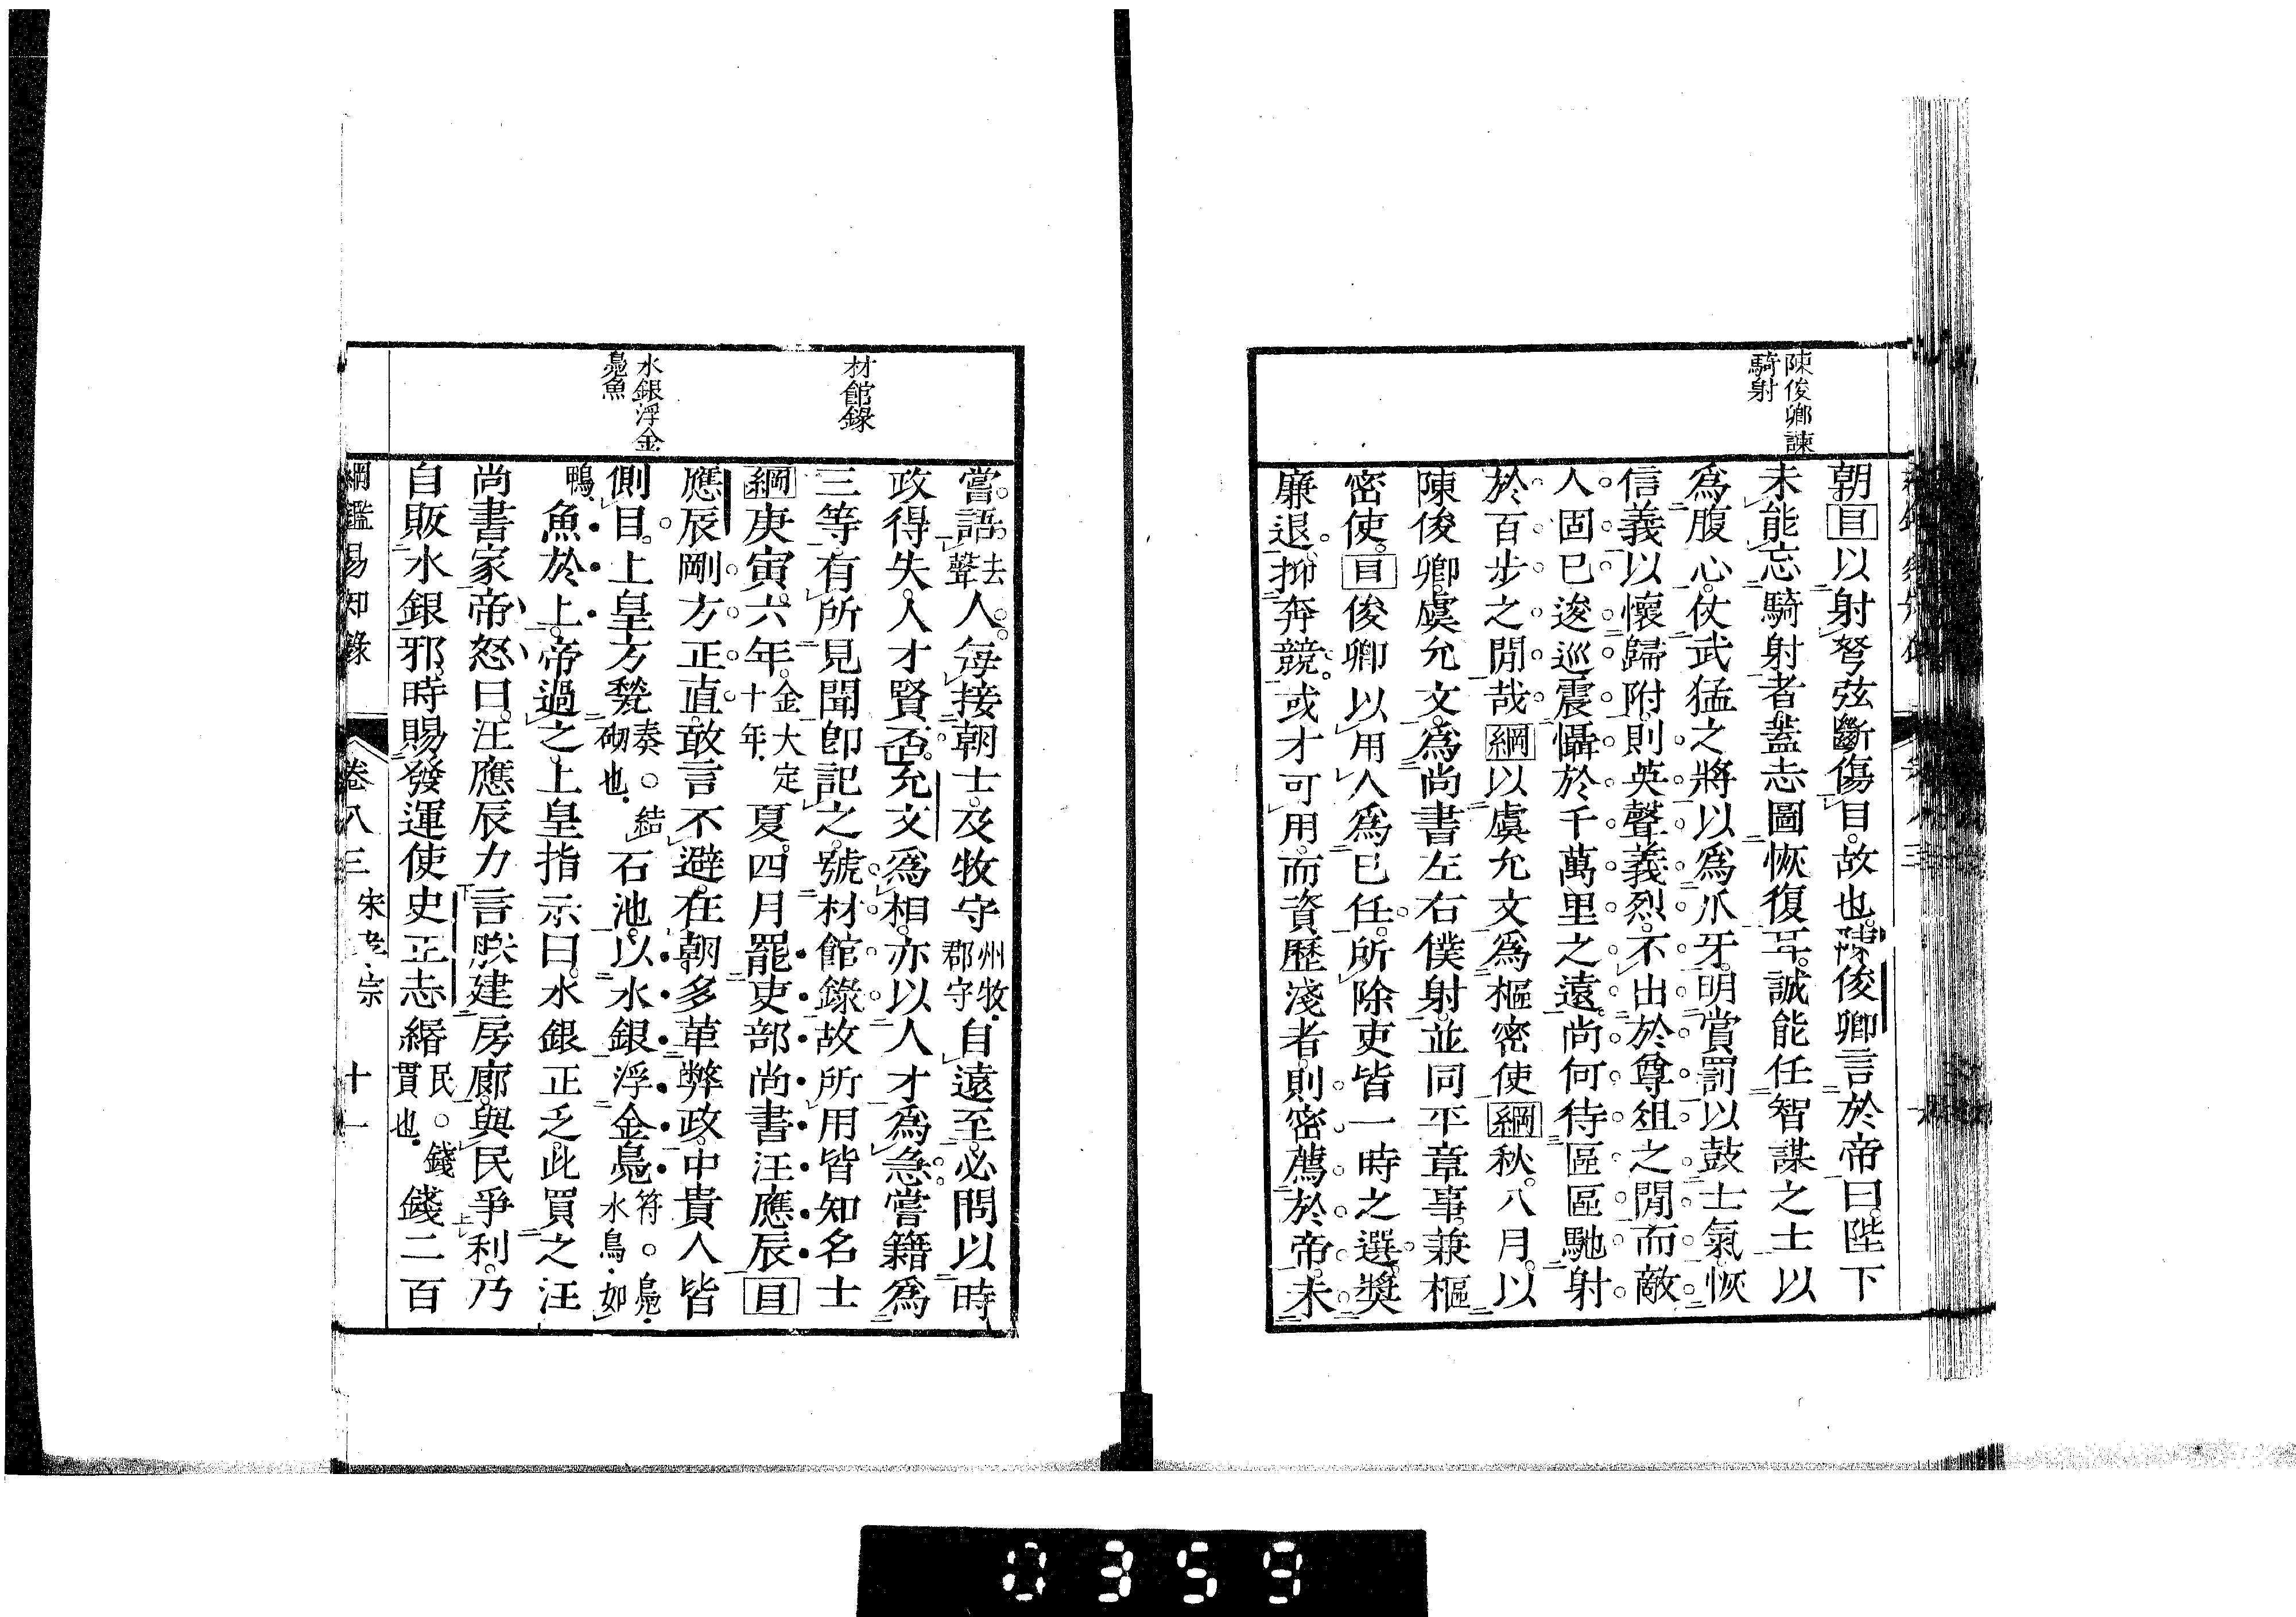 陳俊卿諫
騎射
朝。目以射弩弦斷傷目。故也。陳俊卿言於帝曰。陛下
未能忘騎射者。蓋志圖恢復耳。誠能任智謀之士以
爲腹心。仗武猛之將以爲爪牙。明賞罰以鼓士氣。恢
信義以懷歸附。則英聲義烈。不出於尊俎之閒。而敵
人固已逡巡震懾於千萬里之遠。尚何待區區馳射
於百步之閒哉綱以虞允文爲樞密使綱秋。八月。以
陳俊卿。虞允文。爲尚書左右僕射。並同平章事。兼樞
密使。目俊卿以用人爲己任。所除吏皆一時之選。獎
廉退。抑奔競。或才可用。而資歷淺者。則密薦於帝。未
材館錄
水銀浮金
鳧魚
嘗。語。去聲人。每接朝士。及牧守州牧郡守自遠至。必問以時
政得失。人才賢否。允文爲相。亦以人才爲急。嘗籍爲
三等。有所見聞卽記之。號材館錄。故所用皆知名士
綱庚寅。六年。金大定十年。夏。四月罷吏部尚書汪應辰目
應辰剛方正直。敢言不避。在朝多革弊政。中貴人皆
側目。上皇方甃奏。○結砌也。石池。以水銀浮金鳧符。○鳧。水鳥。如
鴨。魚於上。帝過之。上皇指示曰。水銀正乏。此買之汪
尚書家。帝怒曰。汪應辰力言朕建房廊。與民爭利。乃
自販水銀邪。時賜發運使史正志緡民。○錢貫也。錢二百
綱鑑易知錄 卷八三 宋孝宗 十一
0359